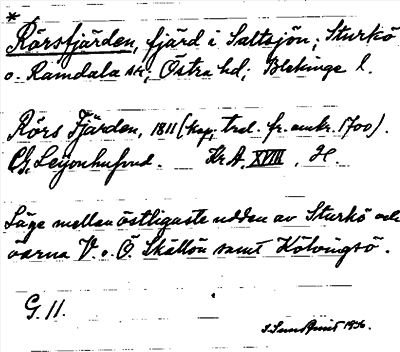 *
Rörsfjärden, fjärd i Saltsjön; Sturkö
o. Ramdala skr, Östra hd; Blekinge l.
Rörs Fjärden, 1811 (kop, trol. fr. omkr. 1700).
Ch. Leijonhufvud. Kr.A. XVIII, H.
Läge mellan östligaste udden av Sturkö och
öarna V. o. Ö. Skällön samt Kölvingsö.
G. 11.
1936.